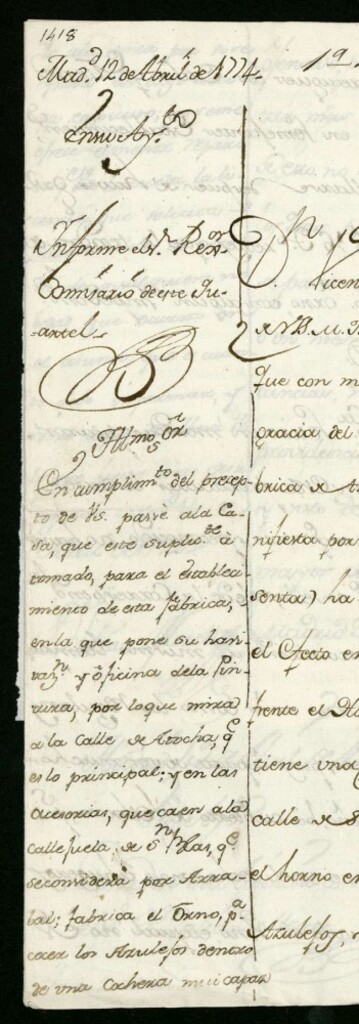 1418
Mad.d 12 de Abril de 1774.
En su Ay.to
Informe el S.r Rex.or
Comisario de este Qu-
artel.
Illmo. S.or
En cumplim.to del precep-
to de V.S. passè a la Ca-
sa, que este Suplic.te à
tomado, para el estableci-
miento de esta fabrica,
en la que pone su havi-
taz.n y oficina de la Pin-
tura, por lo que mira
a la Calle de Atocha, q.e
es lo principal; y en las
acesorias, que caen a la
Callejuela de S.n Blas, q.e
se considera por Arra-
bal; fabrica el Orno, p.a
cocer los Azulejos dentro
de una Cochera mui capaz
19
Vicen
que con m
gracia del
brica de
nifiesta por
senta) ha
el Efecto en
frente el
tiene una
calle de S
el horno en
Azulejos,